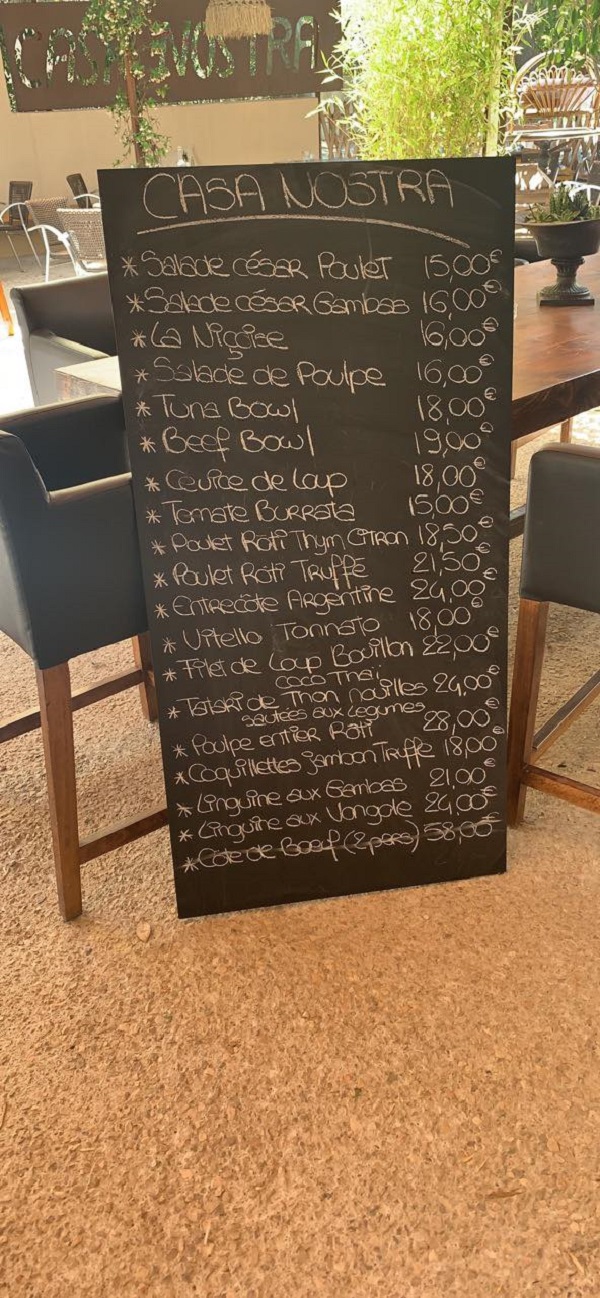 CASA NOSTRA
CASA NOSTRA
* Salade césar Poulet 15,00€
* Salade césar Gambas 16,00€
* La Niçoise 16,00€
* Salade de Poulpe 16,00€
* Tuna Bowl 18,00€
* Beef Bowl 19,00€
* Cevice de Loup 18,00€
* Tomate Burrata 15,00€
* Poulet Rôti Thym Citron 18,50€
* Poulet Rôti Truffe 21,50€
* Entrecôte Argentine 24,00€
* Vitello Tonnato 18,00€
* Filet de Loup Bouillon 22,00€
coco Thaï
* Tataki de Thon nouilles 24,00€
sautées aux Légumes
* Poulpe entier Rôti 28,00€
* Coquillettes jambon Truffe 18,00€
* Linguine aux Gambas 21,00€
* Linguine aux Vongole 24,00€
* Côte de Boeuf (2pers) 58,00€